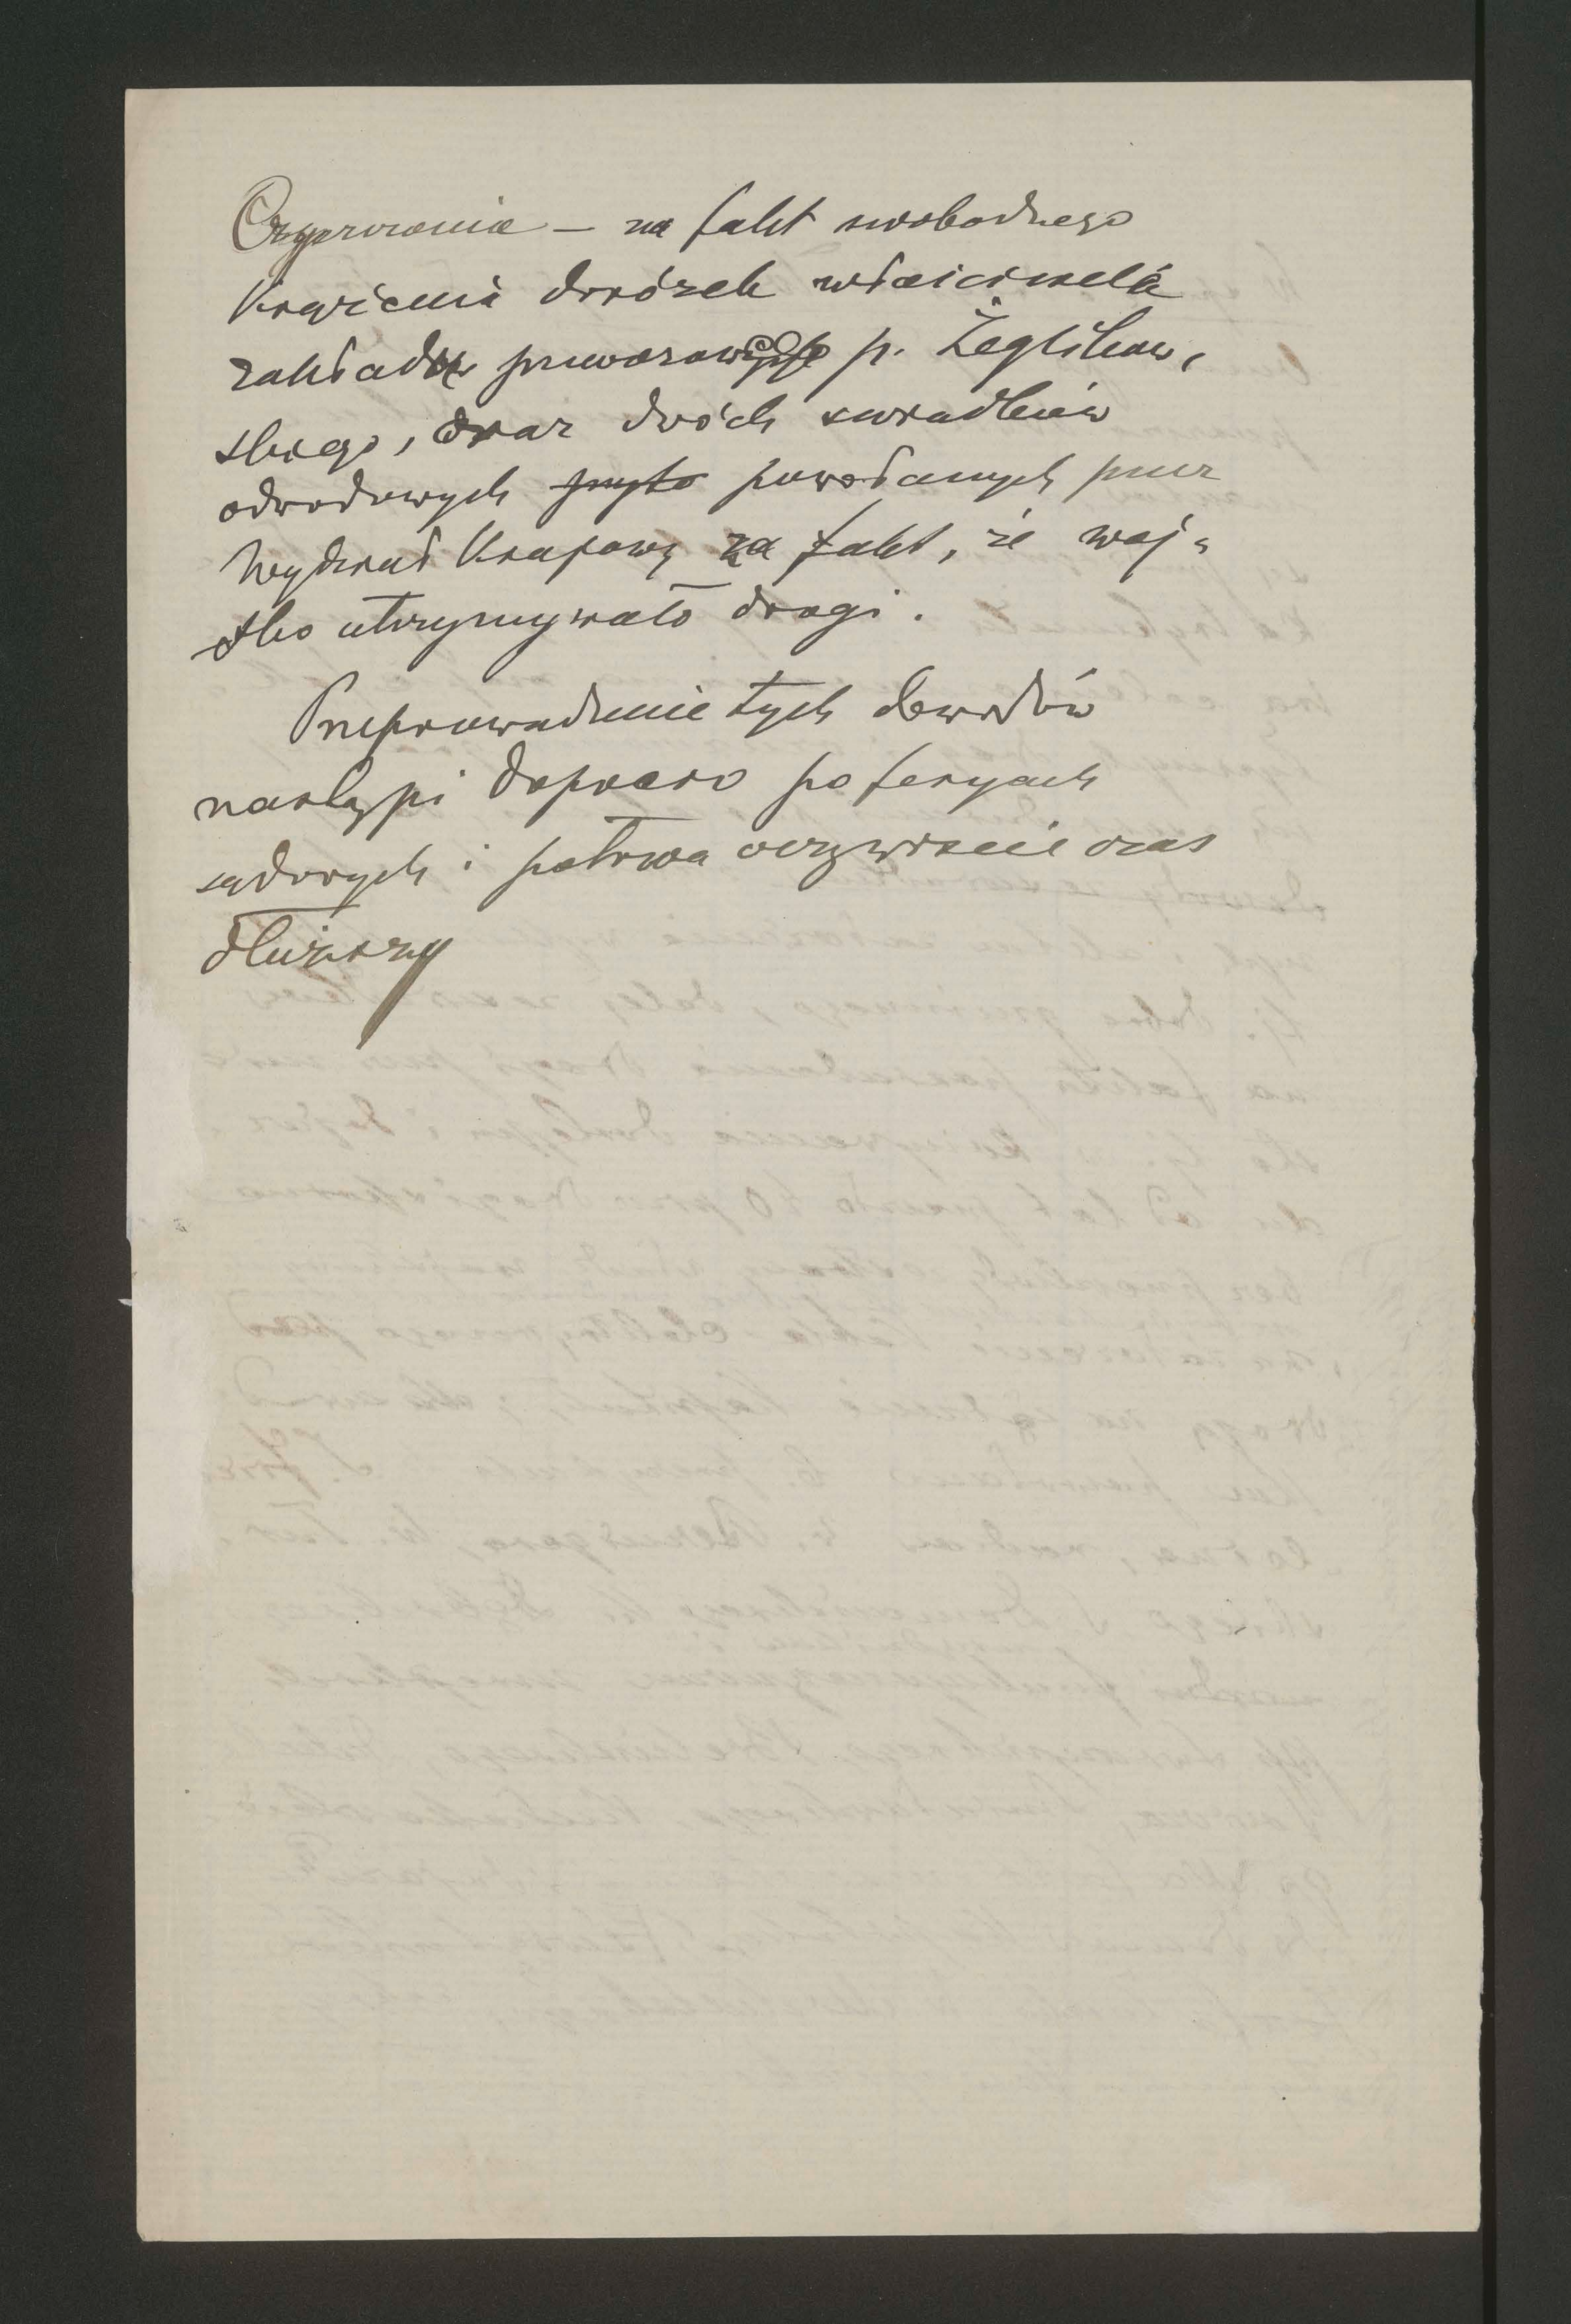 Czyszczenia — na fakt swobodnego
krążenia dorożek właściciela
zakładu przewozowego p. Żeglikow,
skiego, oraz dwóch świadków
odwodowych powołanych przez
Wydział Krajowy za fakt, że woj,
sko utrzymywało drogi.
Przeprowadzenie tych dowodów
nastąpi dopiero po feryach
sądowych i potrwa oczywiście czas
dłuższy